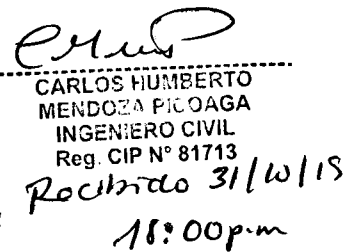 CARLOS HUMBERTO
MENDOZA PICOAGA
INGENIERO CIVIL
Reg. CIP N° 81713
Recibido 31/10/15
18:00 p.m